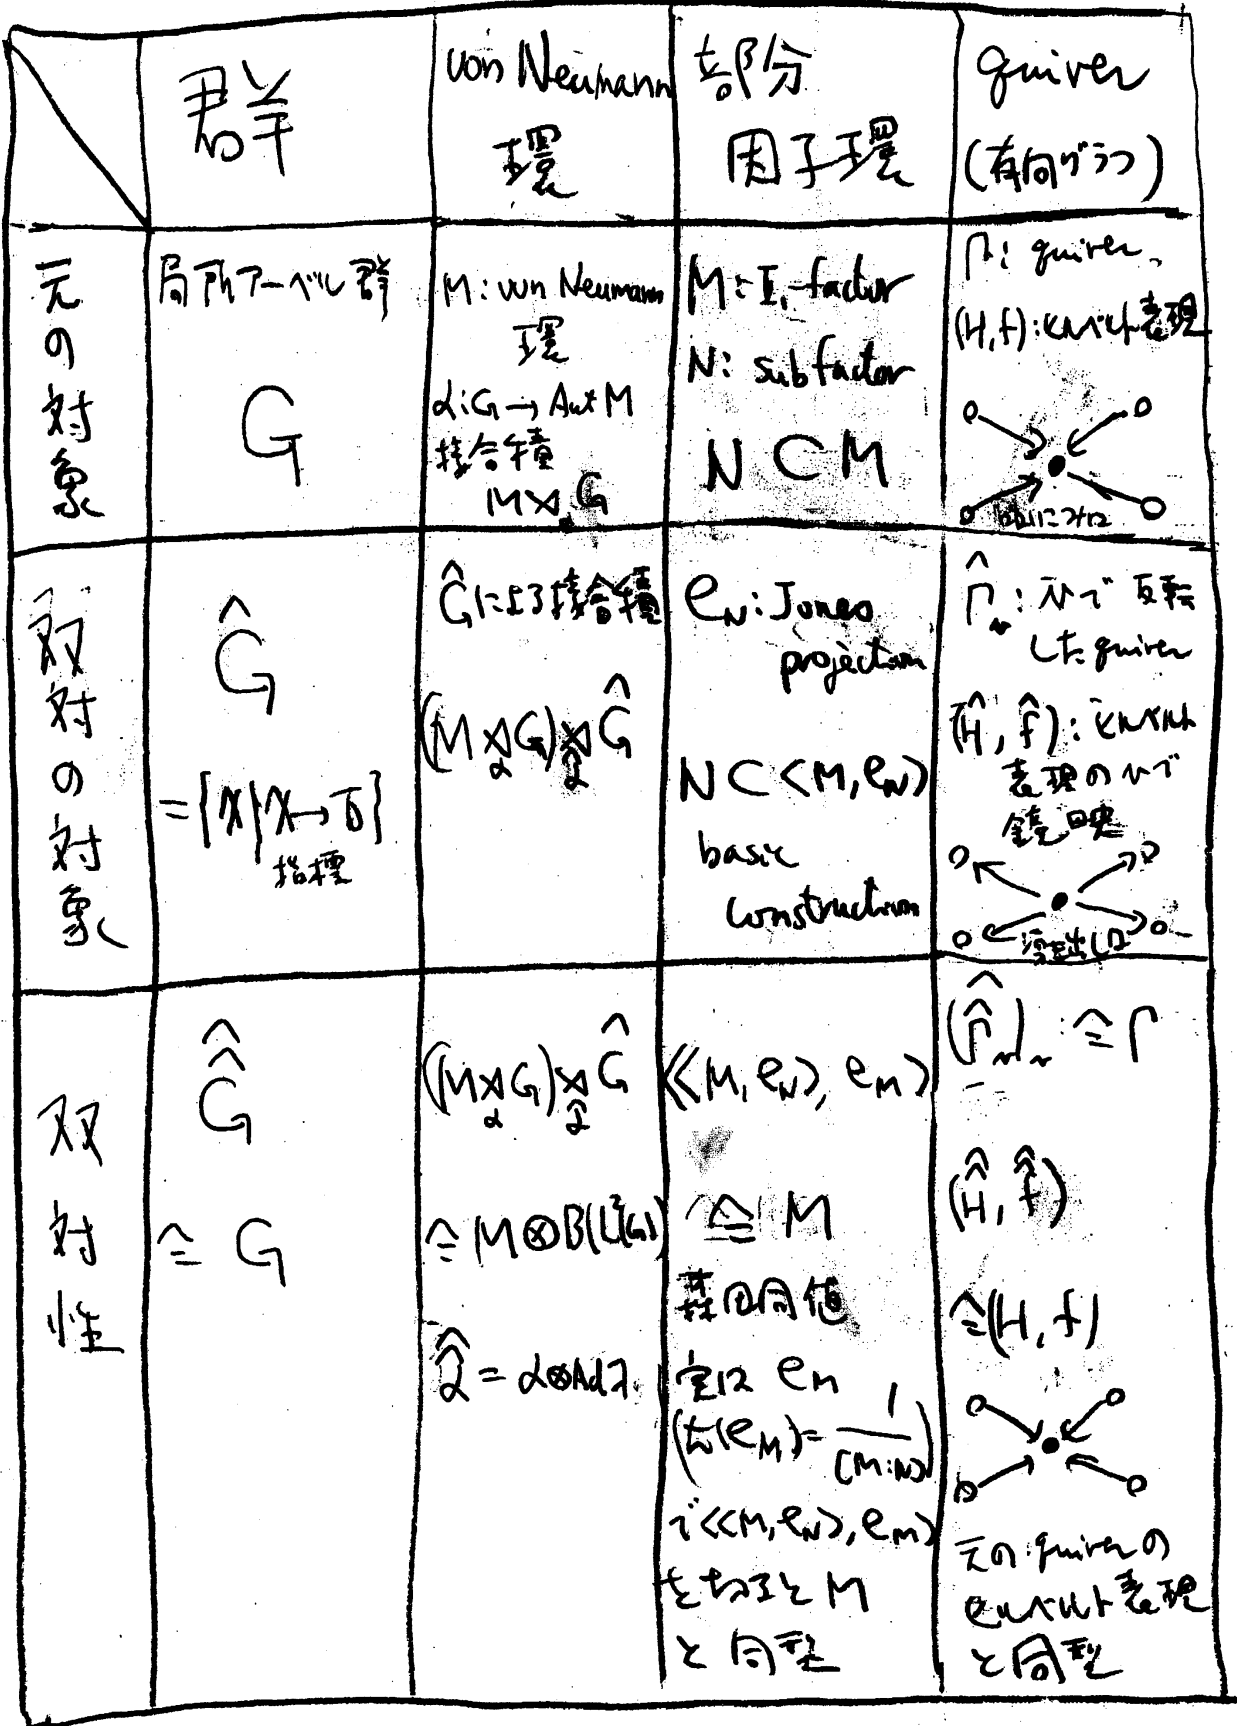 群
von Neumann
環
部分
因子環
quiver
(有向グラフ)
元の対象
局所アーベル群
G
M: von Neumann
環
α: G → Aut M
接合積
M ⋊ G
M: II₁-factor
N: subfactor
N ⊂ M
Γ: quiver
(H, f): ヒルベルト表現
双対の対象
Ĝ
= {χ | χ → T}
指標
Ĝによる接合積
(M ⋊_α G) ⋊_α̂ Ĝ
e_N: Jones
projection
N ⊂ <M, e_N>
basic
construction
Γ̂_v: vで反転
したquiver
(Ĥ, f̂): ヒルベルト
表現のvで
鏡映
双対性
Ĝ̂
≅ G
(M ⋊_α G) ⋊_α̂ Ĝ
≅ M ⊗ B(L²(G))
α̂̂ = α ⊗ Ad λ
<<M, e_N>, e_M>
≅ M
森田同値
実は e_M
(tr(e_M) = 1/[M:N])
で <<M, e_N>, e_M>
を切ると M
と同型
(Γ̂̂_v)_v ≅ Γ
(Ĥ̂, f̂̂)
≅ (H, f)
元のquiverの
ヒルベルト表現
と同型